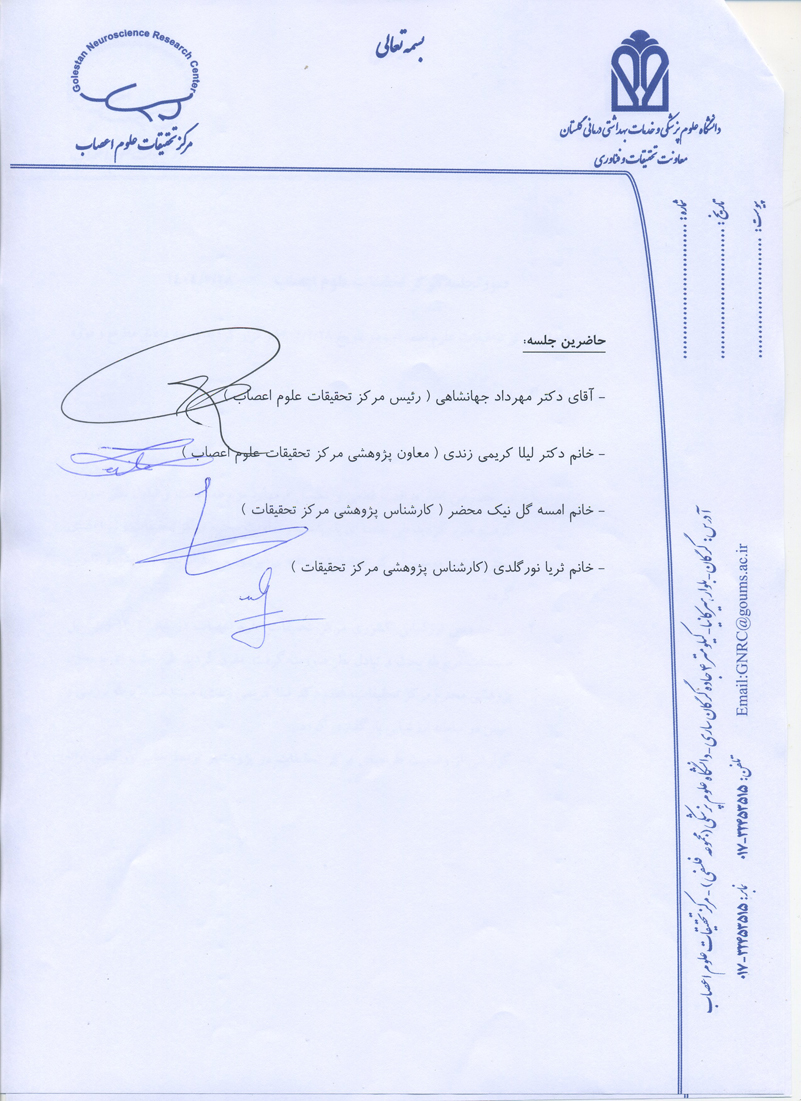 بسمه تعالی
Golestan Neuroscience Research Center
مرکز تحقیقات علوم اعصاب
دانشگاه علوم پزشکی و خدمات بهداشتی درمانی گلستان
معاونت تحقیقات و فناوری
شماره:
تاریخ:
پیوست:
حاضرین جلسه:
- آقای دکتر مهرداد جهانشاهی ( رئیس مرکز تحقیقات علوم اعصاب )
- خانم دکتر لیلا کریمی زندی ( معاون پژوهشی مرکز تحقیقات علوم اعصاب )
- خانم امسه گل نیک محضر ( کارشناس پژوهشی مرکز تحقیقات )
- خانم ثریا نورگلدی (کارشناس پژوهشی مرکز تحقیقات )
آدرس: گرگان-بلوار هیرکانیا-کیلومتر ۴ جاده گرگان ساری-دانشگاه علوم پزشکی (مجموعه فلسفی)-مرکز تحقیقات علوم اعصاب
تلفن: ۰۱۷-۳۲۴۵۳۵۱۵ نمابر: ۰۱۷-۳۲۴۵۳۵۱۵
Email:GNRC@goums.ac.ir